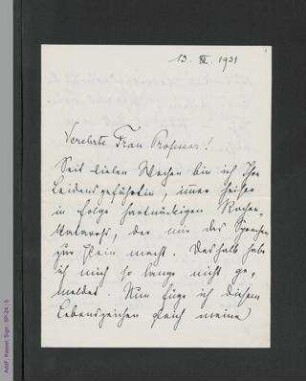 13. XI. 1931
Verehrte Frau Professor!
Seit vielen Wochen bin ich Ihre
Leidensgefährtin, immer heiser
in Folge hartnäckigen Rachen-
katarrhs, der mir das Sprechen
zur Pein macht. Deshalb habe
ich mich so lange nicht ge-
meldet. Nun füge ich diesem
Lebenszeichen gleich meine